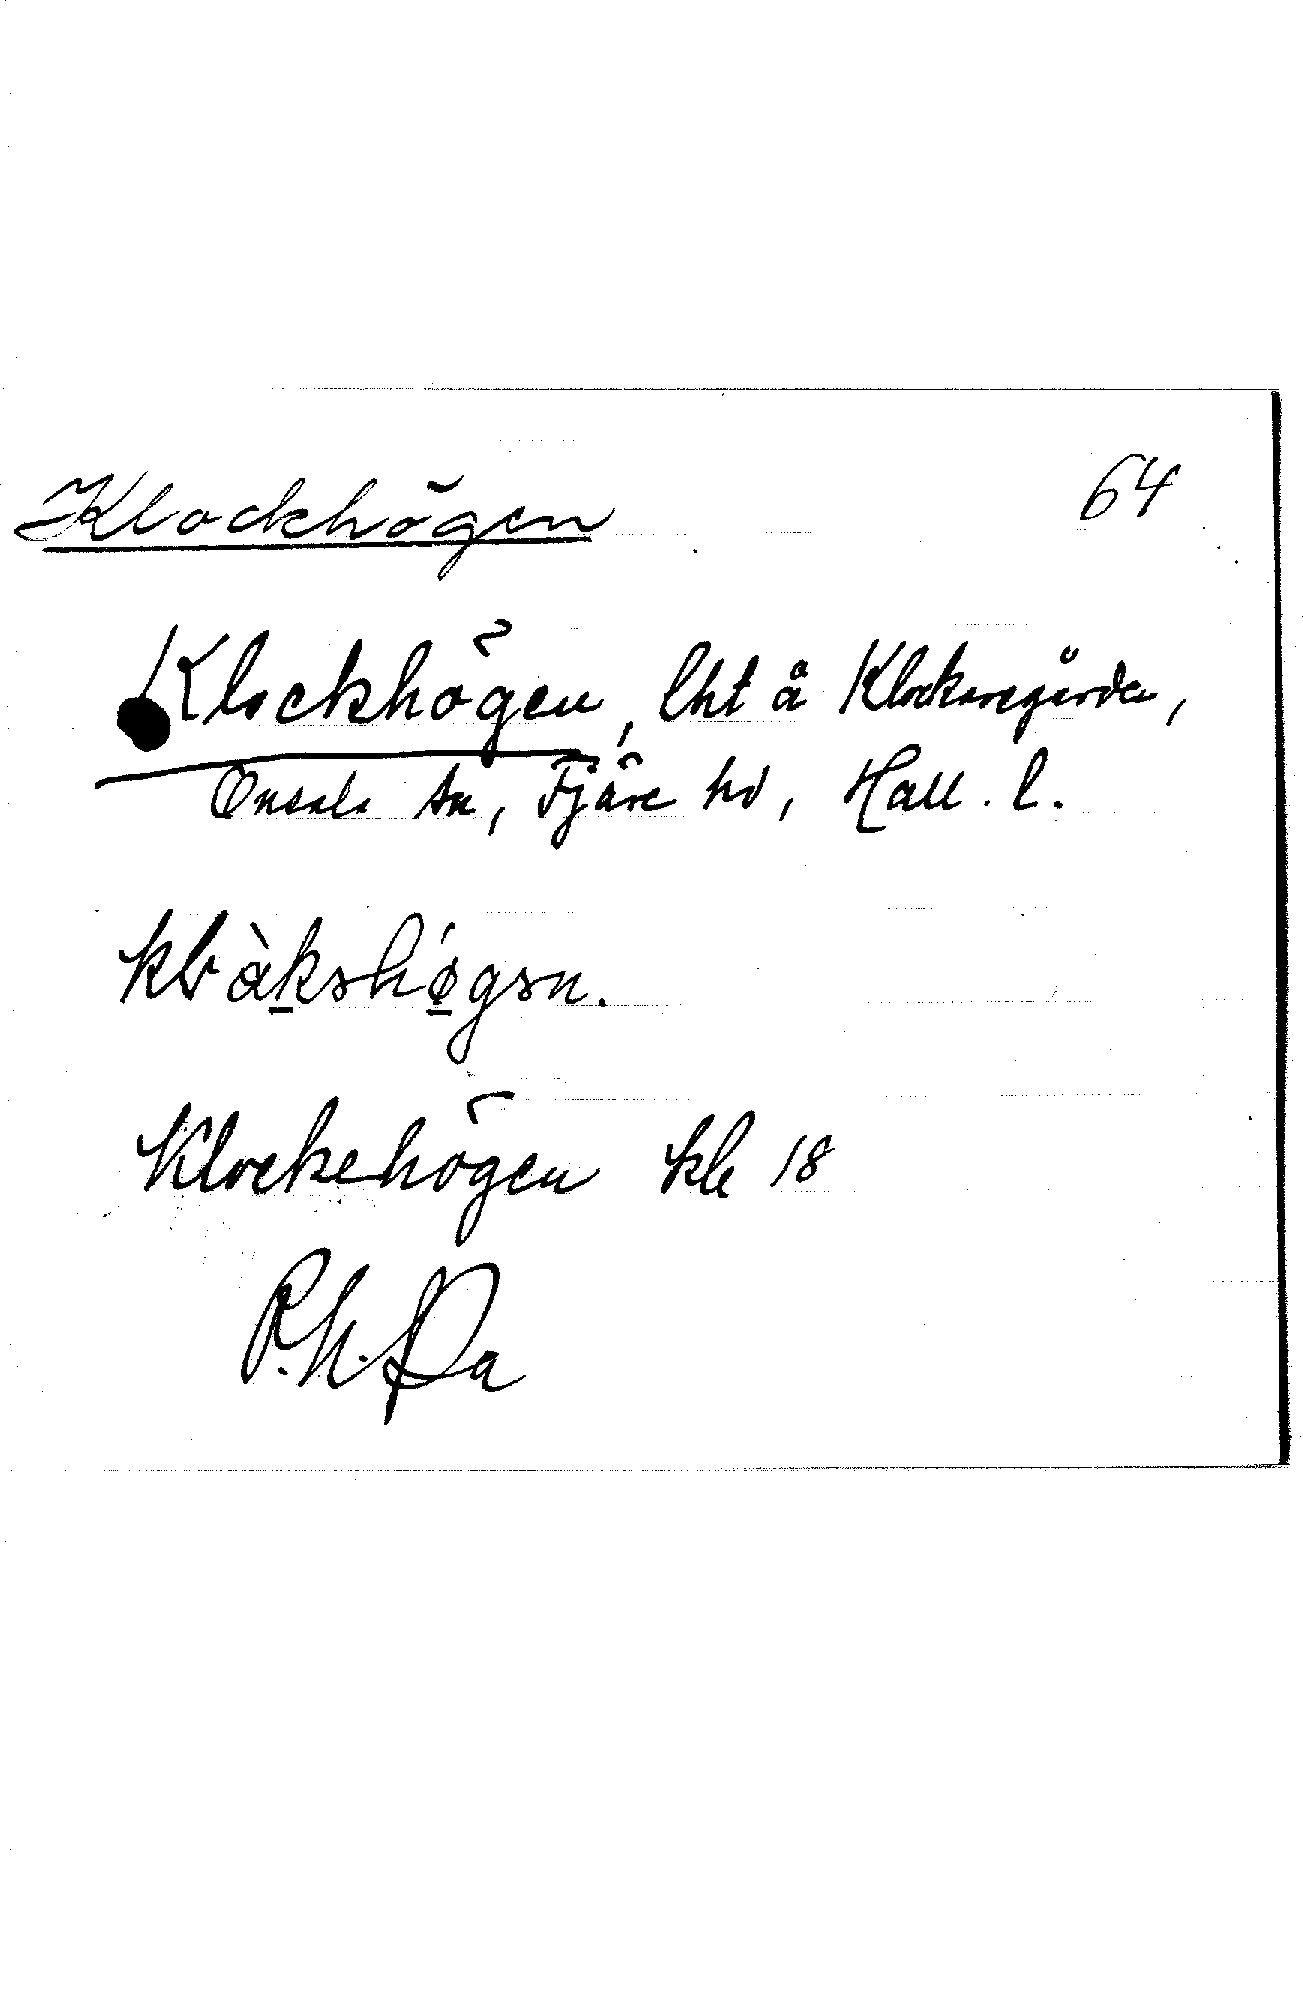 Klockhögen 64
Klockhögen, lht å Klockaregården,
Onsala sn, Fjäre hd, Hall. l.
Klockehögen kle 18